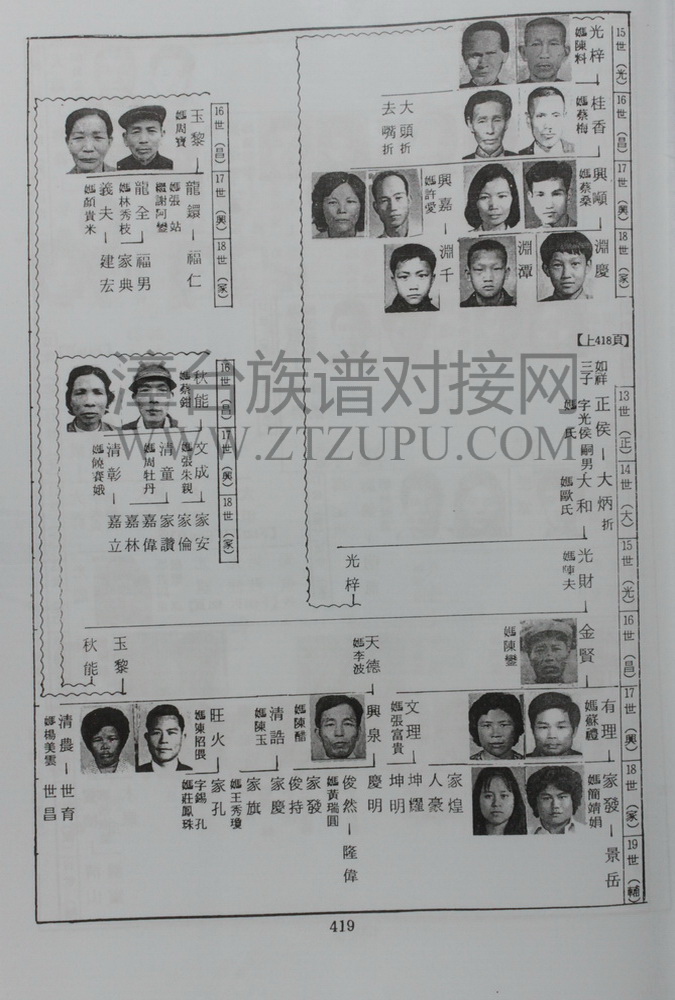 15世（光）
光梓
媽陳料
16世（昌）
桂香
媽蔡梅
大頭折
去嘴折
17世（興）
興順
媽蔡桑
興嘉
媽許愛
18世（家）
淵慶
淵潭
淵千
16世（昌）
玉黎
媽周寶
17世（興）
龍鐶
媽張站
繼謝阿鑾
龍全
媽林秀枝
義夫
媽顏貴米
18世（家）
福仁
福男
家典
建宏
【上418頁】
如祥三子
13世（正）
正侯
字光侯
媽氏
14世（大）
大炳折
嗣男大和
媽歐氏
15世（光）
光財
媽陳夫
光梓
16世（昌）
金賢
媽陳鑾
天德
媽李波
玉黎
秋能
16世（昌）
秋能
媽蔡鉗
17世（興）
文成
媽張朱親
清童
媽周牡丹
清彰
媽饒賽娥
18世（家）
家安
家倫
家讚
嘉偉
嘉林
嘉立
17世（興）
有理
媽蘇禮
文理
媽張富貴
興泉
媽陳醋
清誥
媽陳玉
旺火
媽陳招
清農
媽楊美雲
18世（家）
家發
媽簡靖娟
家煌
人豪
坤耀
坤明
慶明
俊然
媽黃瑞圓
家發
俊持
家慶
家旗
媽王秀瓊
家孔
字錫孔
媽莊鳳珠
世育
世昌
19世（輔）
景岳
隆偉
漳台族谱对接网
WWW.ZTZUPU.COM
419